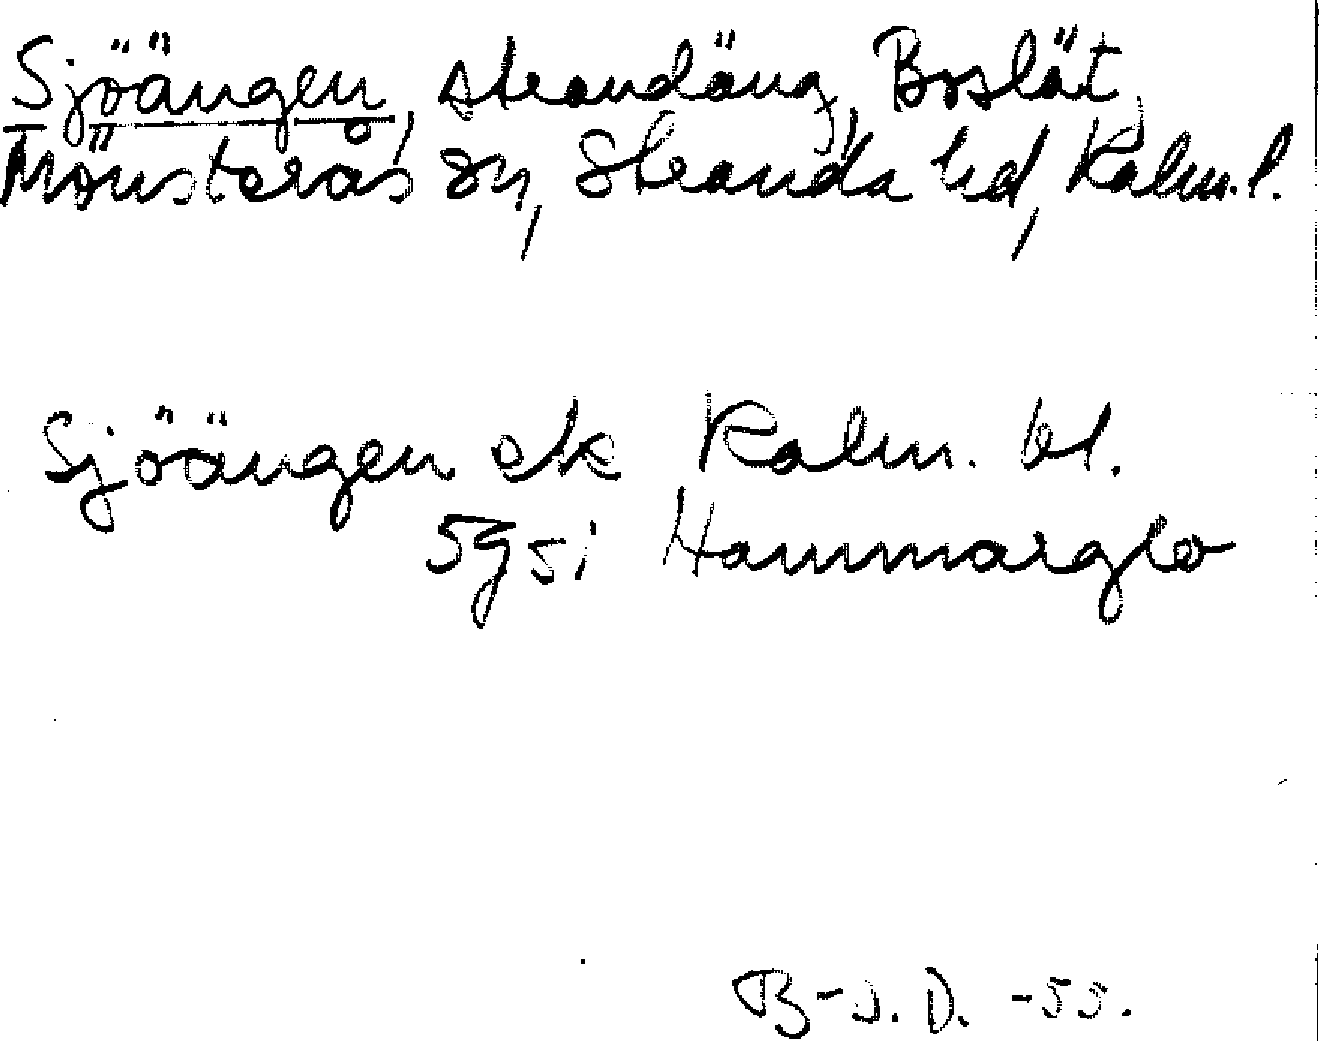 Sjöängen, strandäng, Boslät,
Mönsterås sn, Stranda hd, Kalm. l.
Sjöängen ek Kalm. bl.
5g5i Hammarglo
B-J. D. -55.